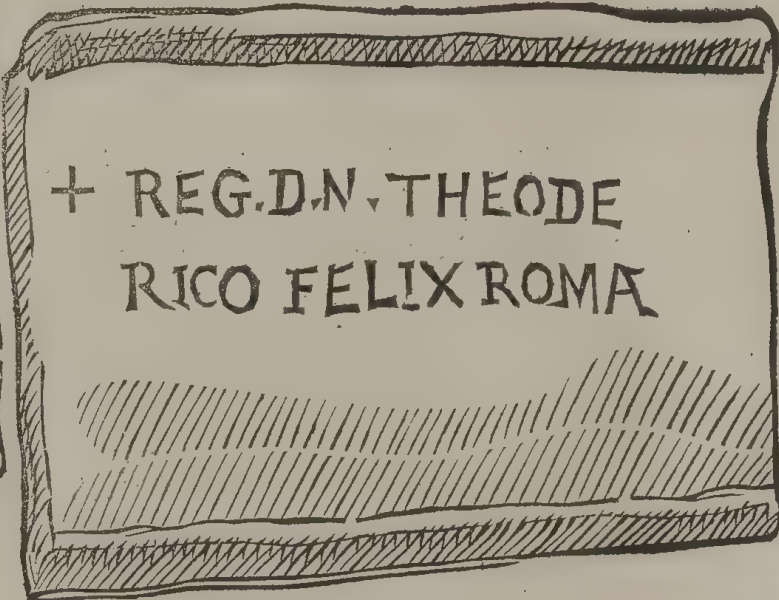 + REG.D.N. THEODE
RICO FELIX ROMA